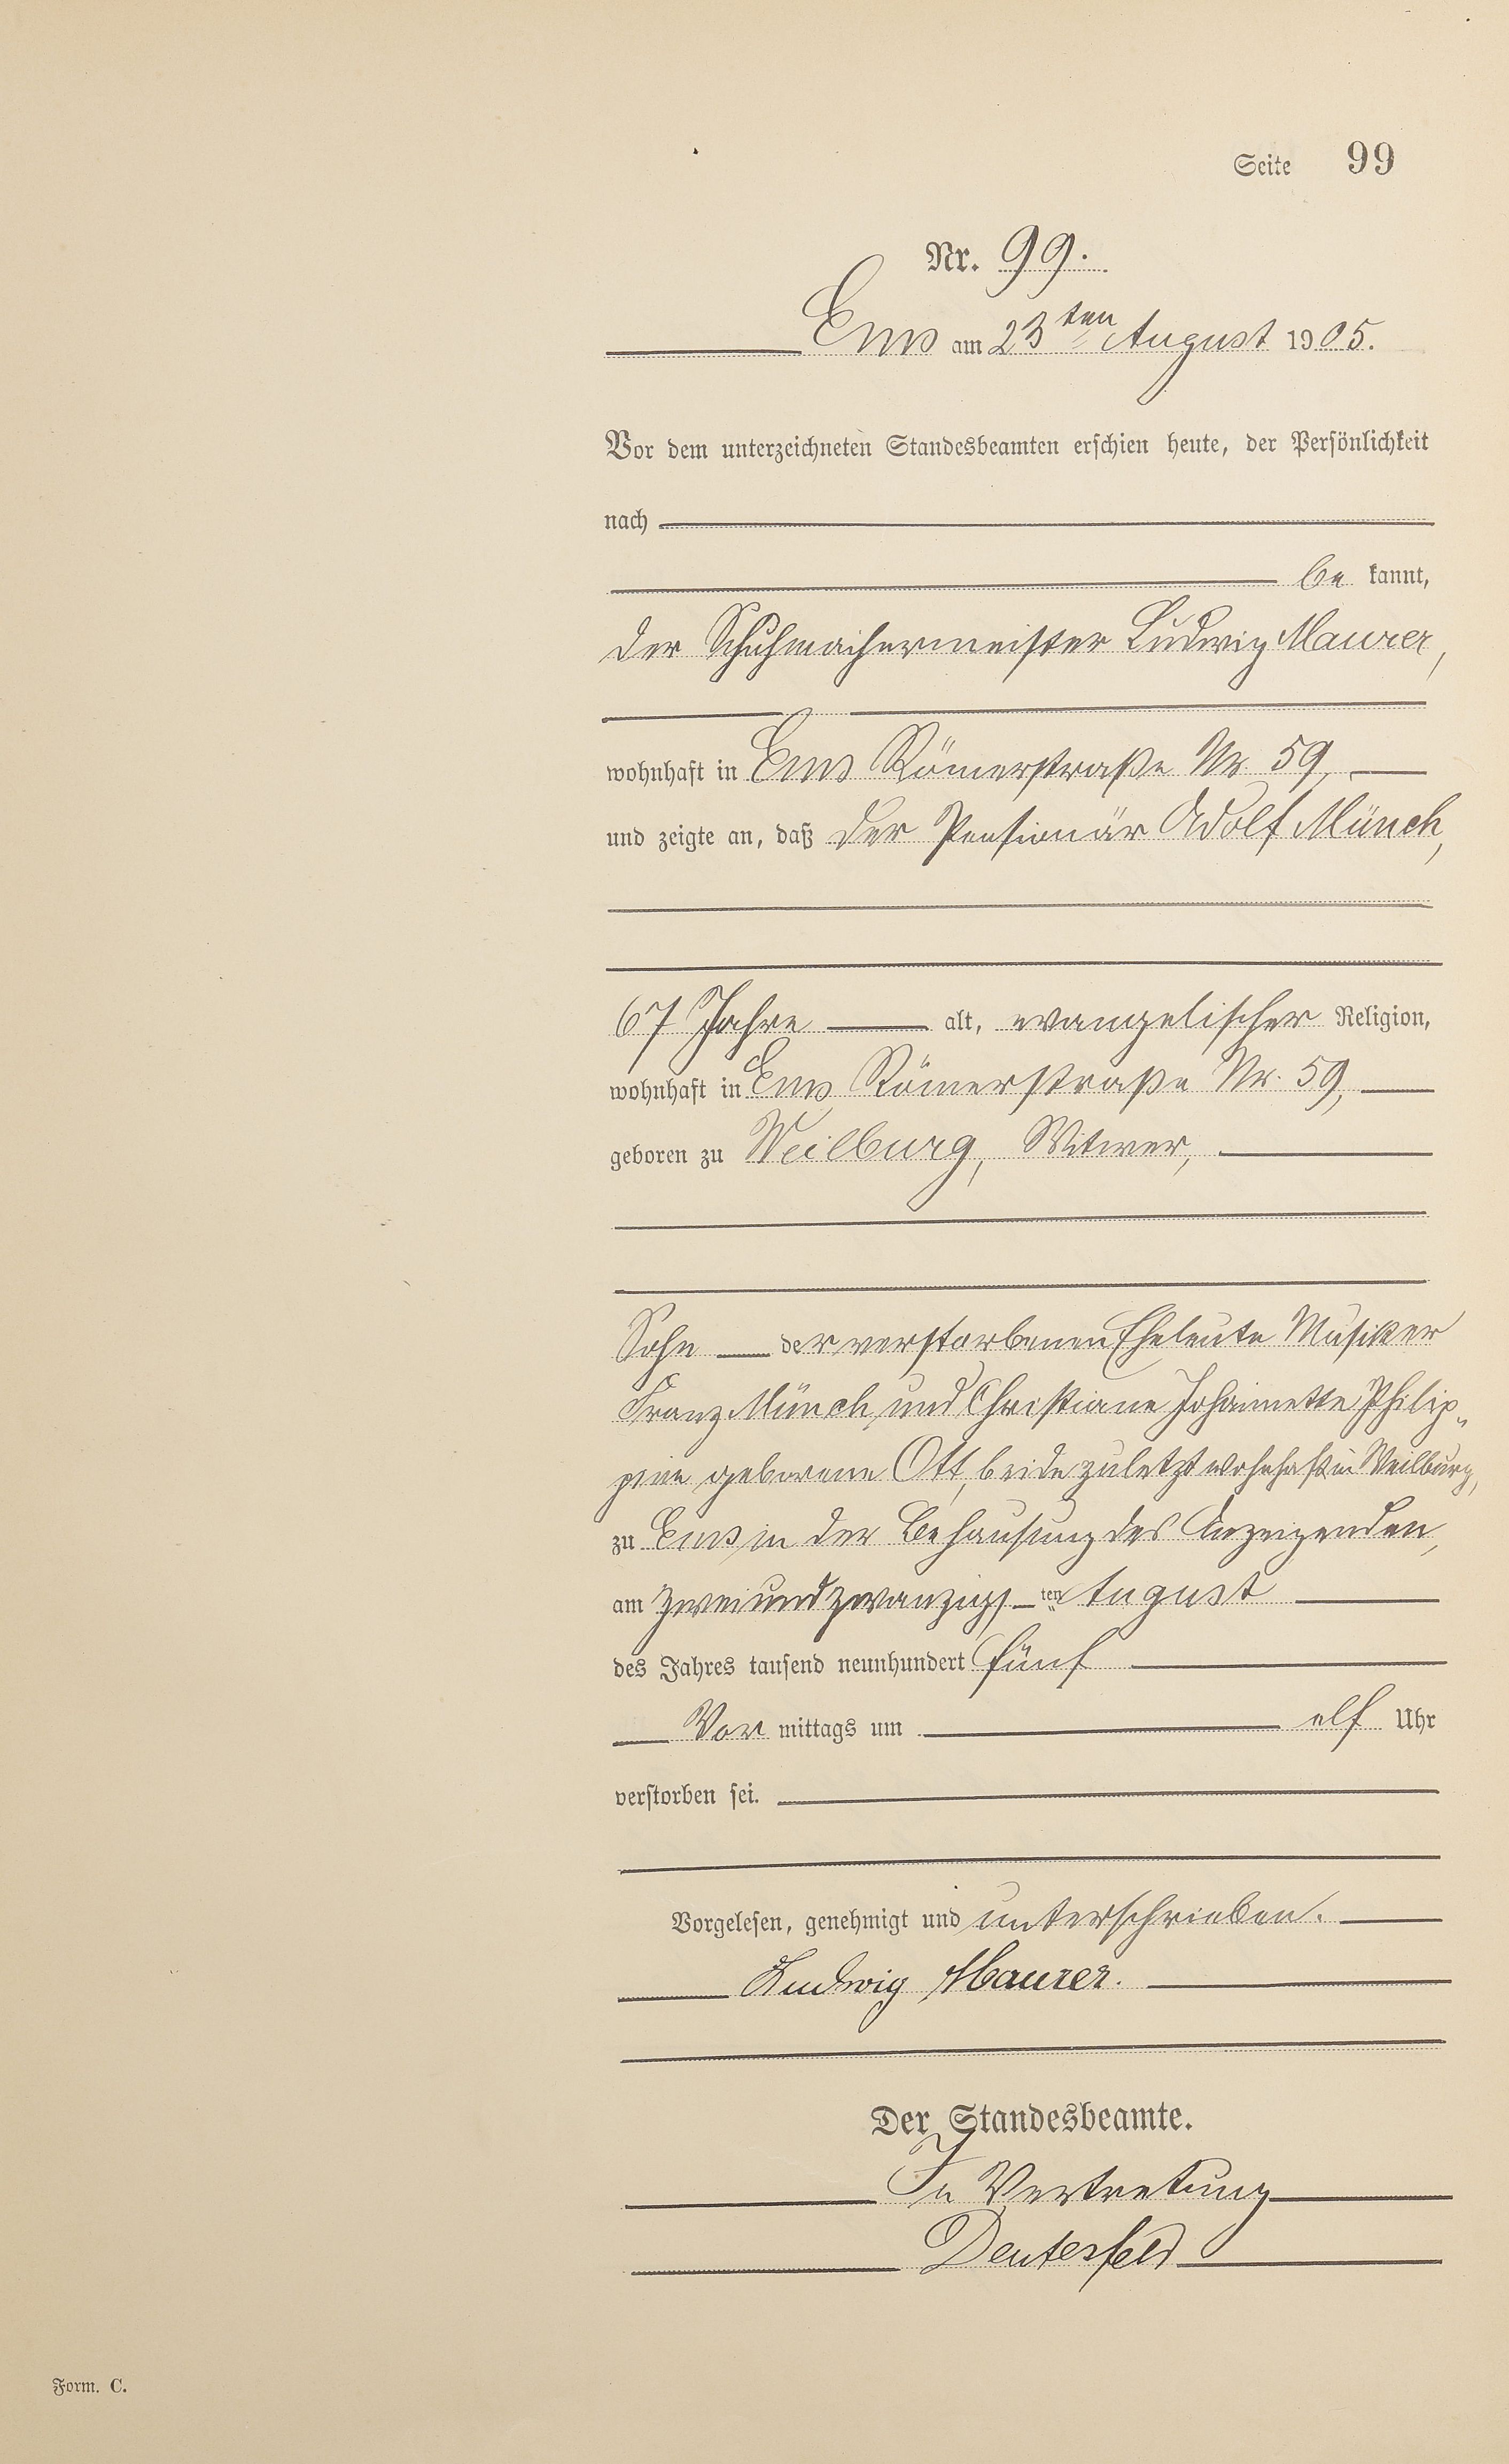 Seite 99
Nr. 99.
Ems am 23ten August 1905.
Vor dem unterzeichneten Standesbeamten erschien heute, der Persönlichkeit
nach
be kannt,
der Schuhmachermeister Ludwig Maurer,
wohnhaft in Ems Römerstraße Nr. 59,
und zeigte an, daß der Pensionär Adolf Münch,
67 Jahre alt, evangelischer Religion,
wohnhaft in Ems, Römerstraße Nr. 59,
geboren zu Weilburg, Witwer,
Sohn der verstorbenen Eheleute Musiker
Franz Münch und Christiane Johannette Philip„
pine geborene Ott, beide zuletzt wohnhaft in Weilburg,
zu Ems in der Behausung des Anzeigenden,
am zweiundzwanzigs ten August
des Jahres tausend neunhundert fünf
Vor mittags um elf Uhr
verstorben sei.
Vorgelesen, genehmigt und unterschrieben.
Ludwig Maurer.
Der Standesbeamte.
In Vertretung
Deutesfeld
Form. C.